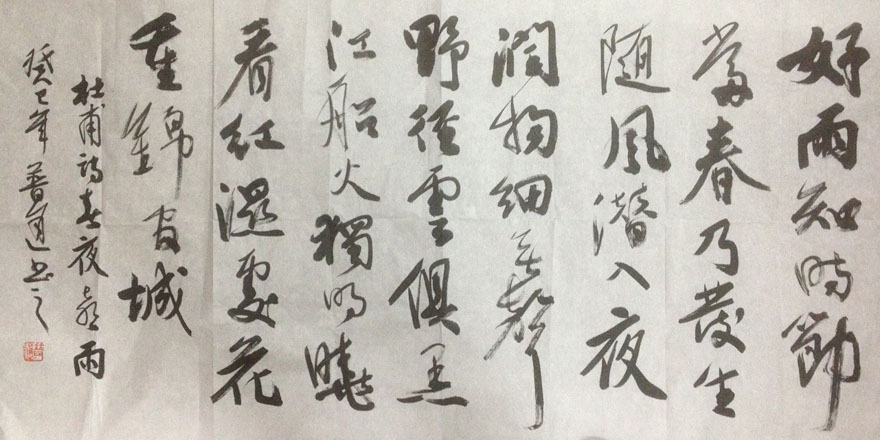 好雨知時節
當春乃發生
随風潛入夜
潤物細无聲
野徑雲俱黑
江船火獨明曉
看紅濕處花
重錦官城
杜甫詩春夜喜雨
癸巳年普道书之